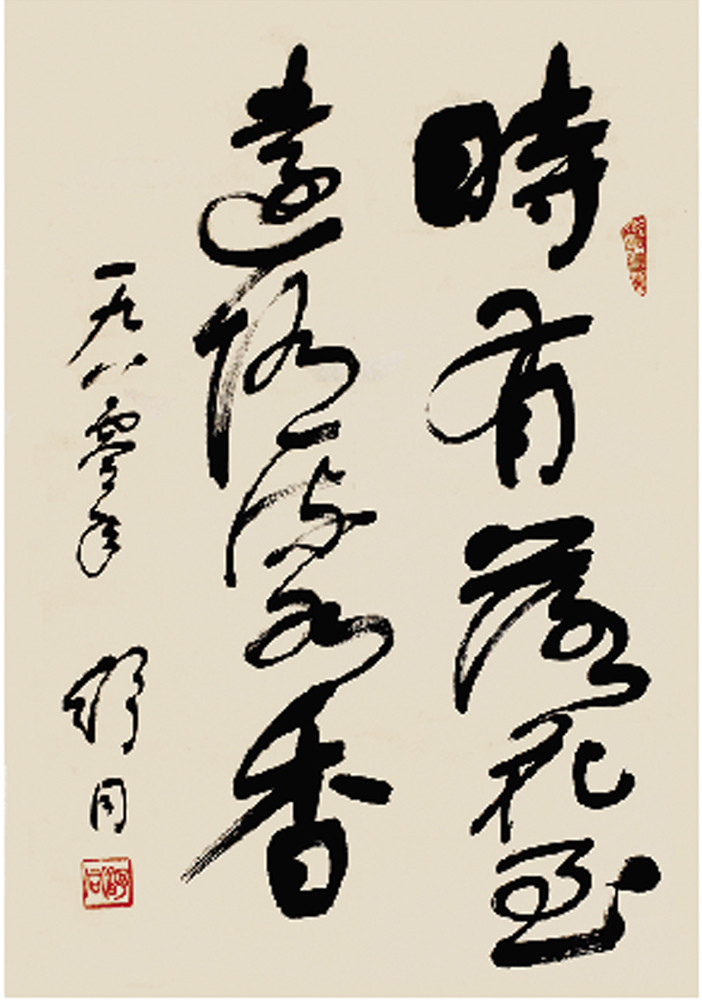 時有落花至
遠隨流水香
一九八零年 舒同
舒同